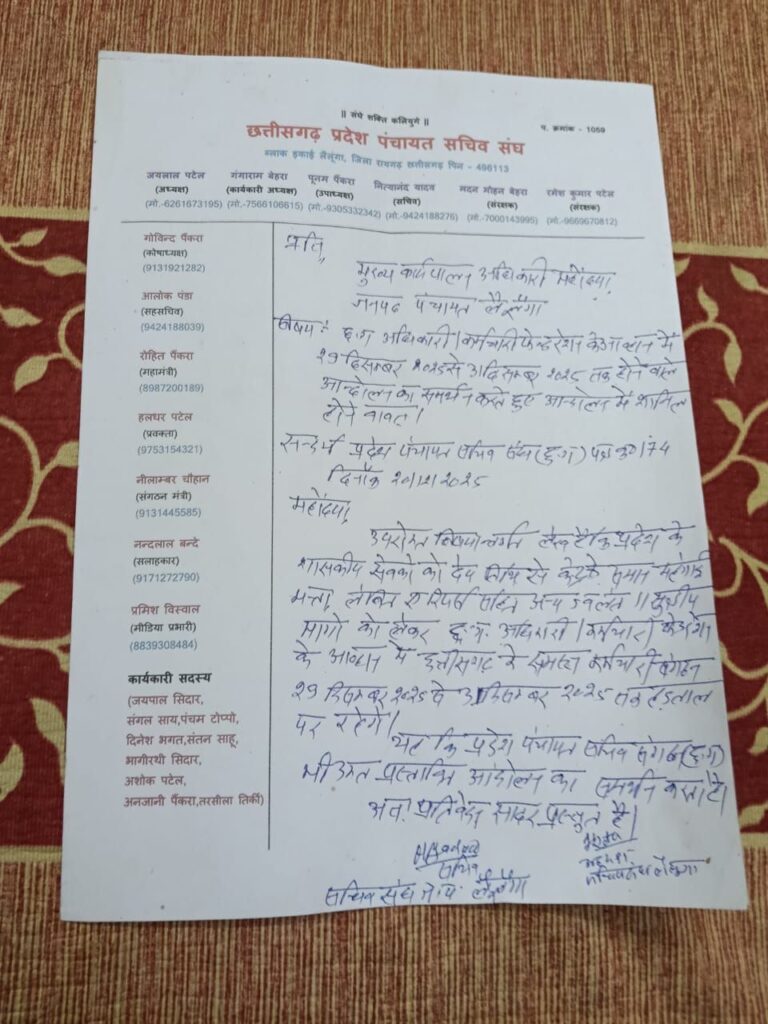 || संघे शक्ति कलियुगे ||
प. क्रमांक - 1059
छत्तीसगढ़ प्रदेश पंचायत सचिव संघ
ब्लाक इकाई लैलूंगा, जिला रायगढ़ छत्तीसगढ़ पिन - 496113
जयलाल पटेल गंगाराम बेहरा पूनम पैंकरा नित्यानंद यादव मदन मोहन बेहरा रमेश कुमार पटेल
(अध्यक्ष) (कार्यकारी अध्यक्ष) (उपाध्यक्ष) (सचिव) (संरक्षक) (संरक्षक)
(मो.-6261673195) (मो.-7566106615) (मो.-9305332342) (मो.-9424188276) (मो.-7000143995) (मो.-9669670812)
गोविन्द पैंकरा
(कोषाध्यक्ष)
(9131921282)
आलोक पंडा
(सहसचिव)
(9424188039)
रोहित पैंकरा
(महामंत्री)
(8987200189)
हलधर पटेल
(प्रवक्ता)
(9753154321)
नीलाम्बर चौहान
(संगठन मंत्री)
(9131445585)
नन्दलाल बन्दे
(सलाहकार)
(9171272790)
प्रमिश विस्वाल
(मीडिया प्रभारी)
(8839308484)
कार्यकारी सदस्य
(जयपाल सिदार,
संगल साय,पंचम टोप्पो,
दिनेश भगत,संतन साहू,
भागीरथी सिदार,
अशोक पटेल,
अनजानी पैंकरा,तरसीला तिर्की)
प्रति,,
मुख्य कार्यपालन अधिकारी महोदया,
जनपद पंचायत लैलूँगा
विषय :- छ.ग अधिकारी/कर्मचारी फेडरेशन के आव्हान में
२९ दिसम्बर २०२५ से ३१ दिसम्बर २०२५ तक होने वाले
आन्दोलन का समर्थन करते हुए आन्दोलन में शामिल
होने बाबत।
सन्दर्भ प्रदेश पंचायत सचिव संघ (छ.ग) पत्र क्र० 174
दिनाँक २०।१२।२०२५
महोदया,
उपरोक्त विषयान्तर्गत लेख है कि प्रदेश के
शासकीय सेवकों को देय तिथि से केन्द्र के समान महंगाई
भत्ता, लंबित एरियर्स सहित अन्य ज्वलंत 11 सूत्रीय
मांगो को लेकर छ.ग. अधिकारी/कर्मचारी फेडरेशन
के आव्हान में छत्तीसगढ़ के समस्त कर्मचारी संगठन
२९ दिसम्बर २०२५ से ३१ दिसम्बर २०२५ तक हड़ताल
पर रहेंगे।
यह कि प्रदेश पंचायत सचिव संगठन (छ.ग)
भी उक्त प्रस्तावित आंदोलन का समर्थन करता है।
अतः प्रतिवेदन सादर प्रस्तुत है।
सचिव
सचिव संघ लैलूंगा
अध्यक्ष
सचिव संघ लैलूंगा